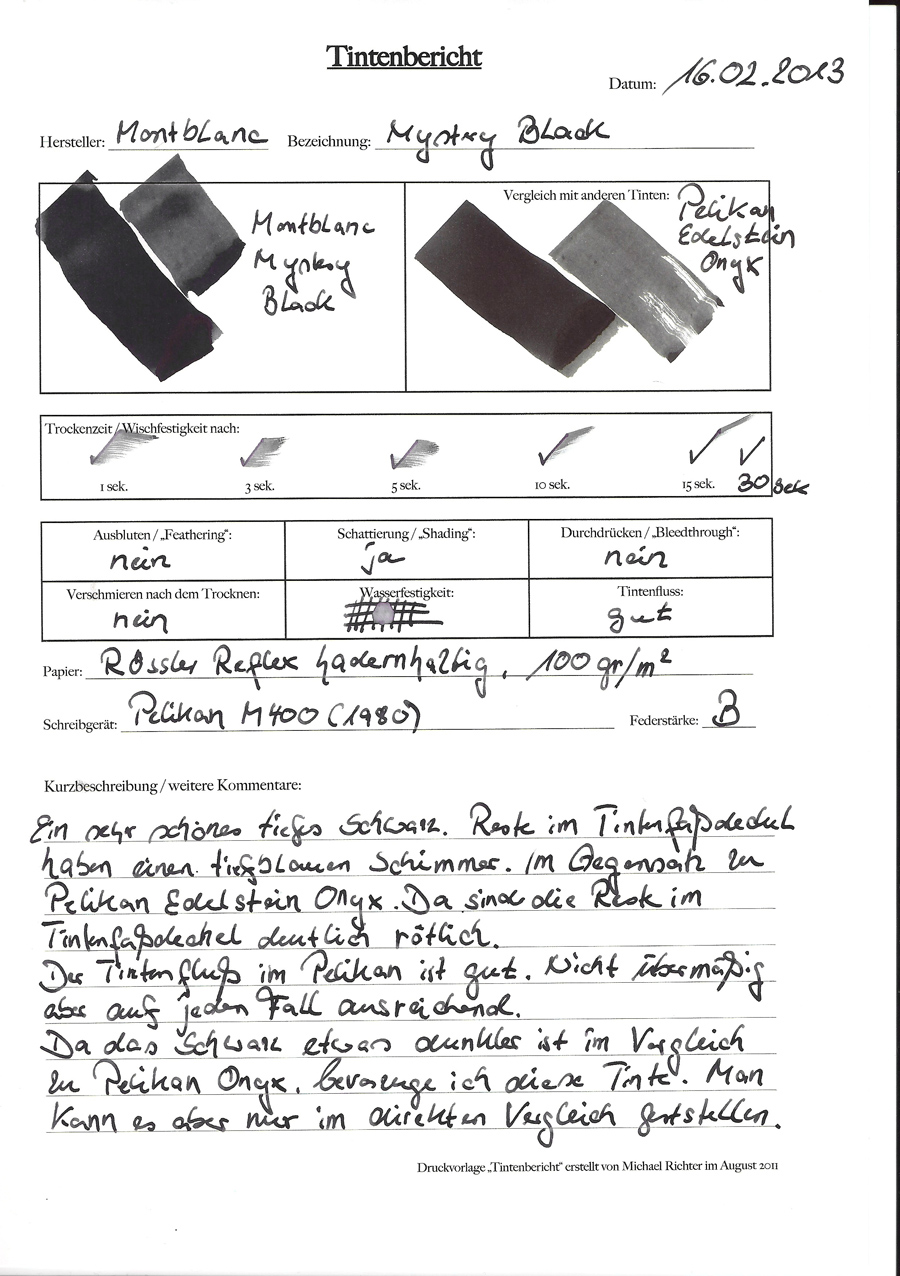 Tintenbericht
Datum: 16.02.2013
Hersteller: Montblanc Bezeichnung: Mystry Black
Montblanc
Mystry
Black
Vergleich mit anderen Tinten: Pelikan
Edelstein
Onyx
Trockenzeit / Wischfestigkeit nach:
1 sek. 3 sek. 5 sek. 10 sek. 15 sek. 30 sek
Ausbluten / „Feathering": Schattierung / „Shading": Durchdrücken / „Bleedthrough":
nein ja nein
Verschmieren nach dem Trocknen: Wasserfestigkeit: Tintenfluss:
nein gut
Papier: Rössler Reflex hadernhaltig, 100 gr/m²
Schreibgerät: Pelikan M400 (1980) Federstärke: B
Kurzbeschreibung / weitere Kommentare:
Ein sehr schönes tiefes Schwarz. Reste im Tintenfaßdeckel
haben einen tiefblauen Schimmer. Im Gegensatz zu
Pelikan Edelstein Onyx. Da sind die Reste im
Tintenfaßdeckel deutlich rötlich.
Der Tintenfluß im Pelikan ist gut. Nicht übermäßig
aber auf jeden Fall ausreichend.
Da das Schwarz etwas dunkler ist im Vergleich
zu Pelikan Onyx, bevorzuge ich diese Tinte. Man
kann es aber nur im direkten Vergleich feststellen.
Druckvorlage „Tintenbericht" erstellt von Michael Richter im August 2011